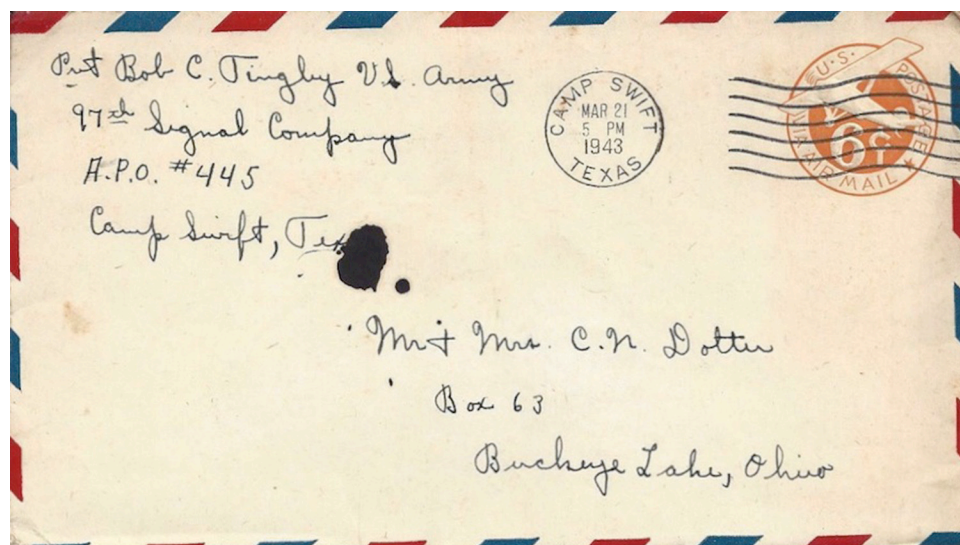 Pvt Bob C. Tingley U.S. Army
97th Signal Company
A.P.O. #445
Camp Swift, Tex
CAMP SWIFT
MAR 21
5 PM
1943
TEXAS
U.S. POSTAGE
6¢
VIA AIR MAIL
Mr + Mrs. C.N. Dotter
Box 63
Buckeye Lake, Ohio